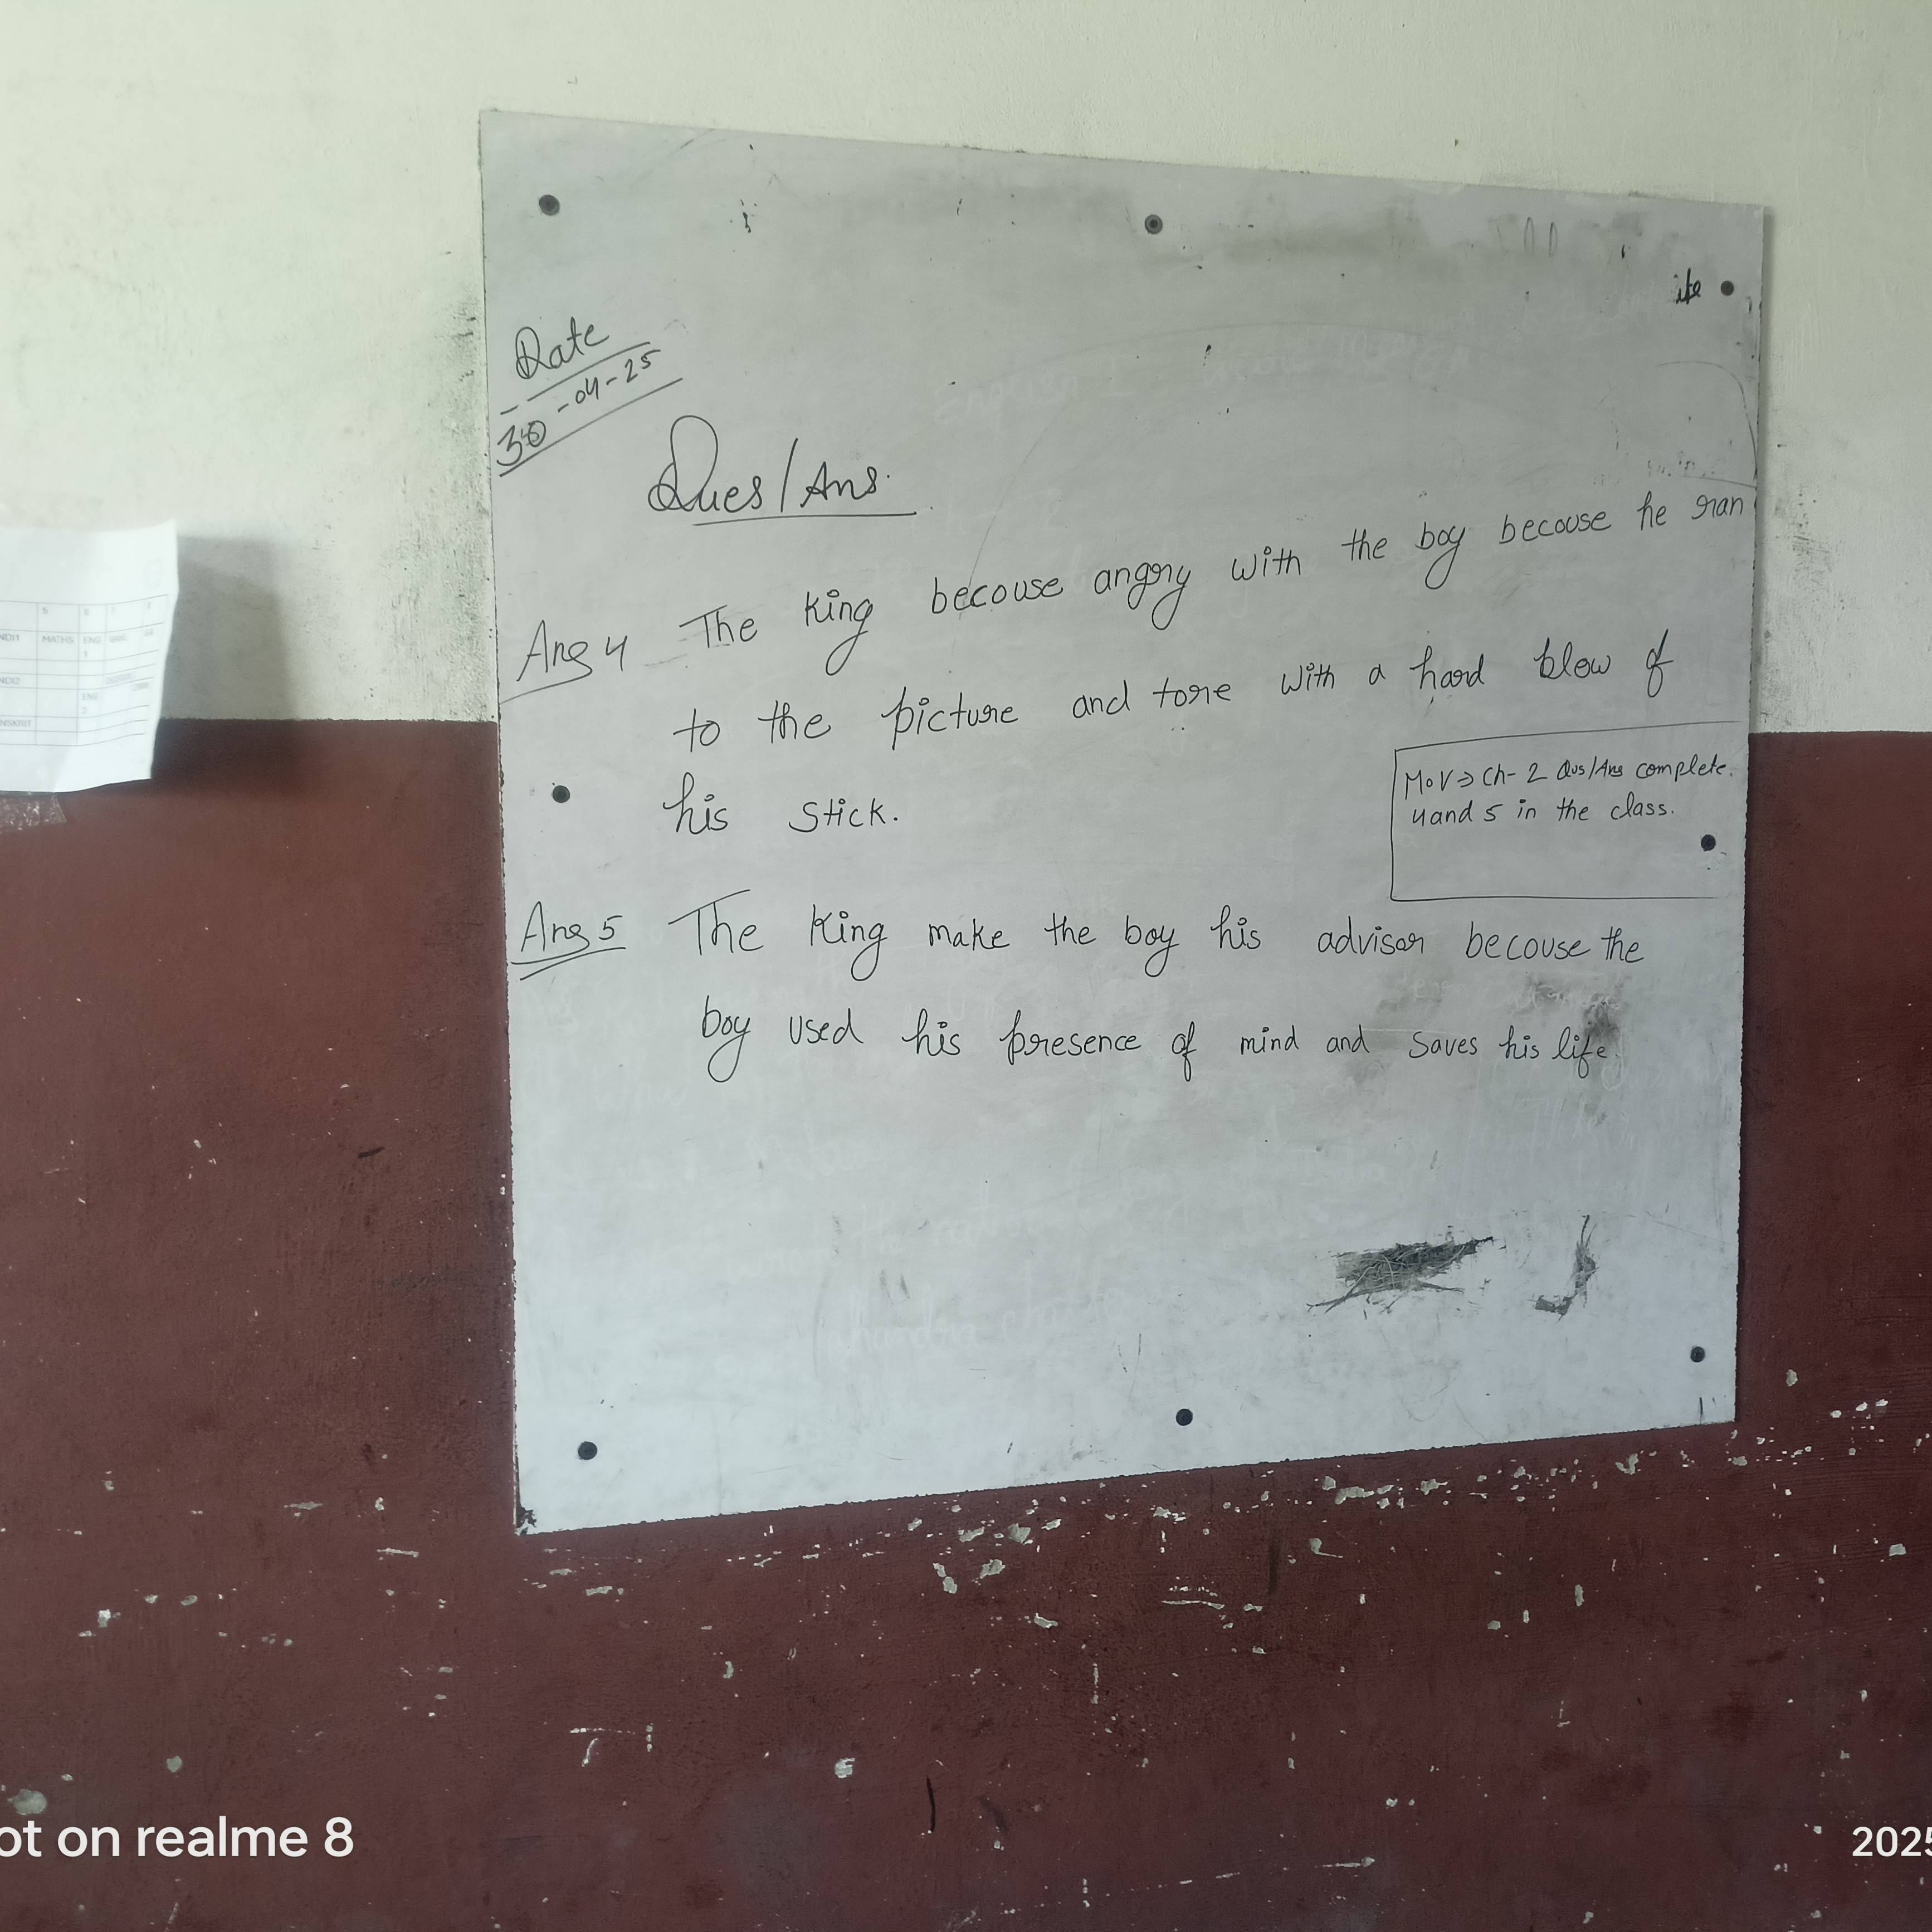 Date
30-04-25
Ques/Ans.
Ans 4 The King becouse angry with the boy becouse he ran
to the picture and tore with a hard blow of
his stick.
MOV⇒ Ch-2 Qus/Ans complete.
4 and 5 in the class.
Ans 5 The King make the boy his advisor becouse the
boy used his presence of mind and saves his life.
5 6 7 8
MATHS ENG
1
ENG
2
ot on realme 8
2025